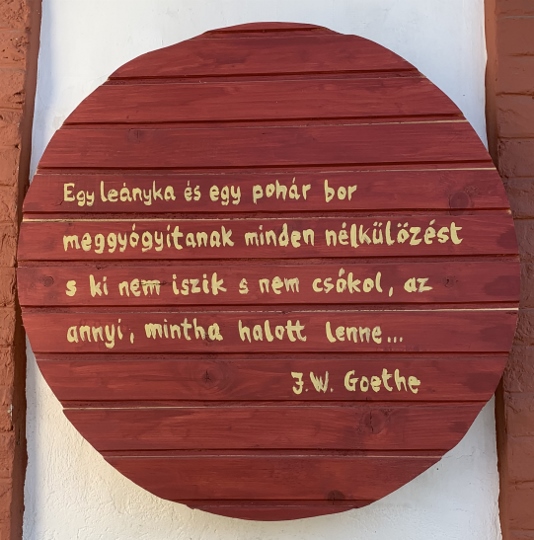 Egy leányka és egy pohár bor
meggyógyítanak minden nélkülözést
s ki nem iszik s nem csókol, az
annyi, mintha halott lenne...
J.W. Goethe